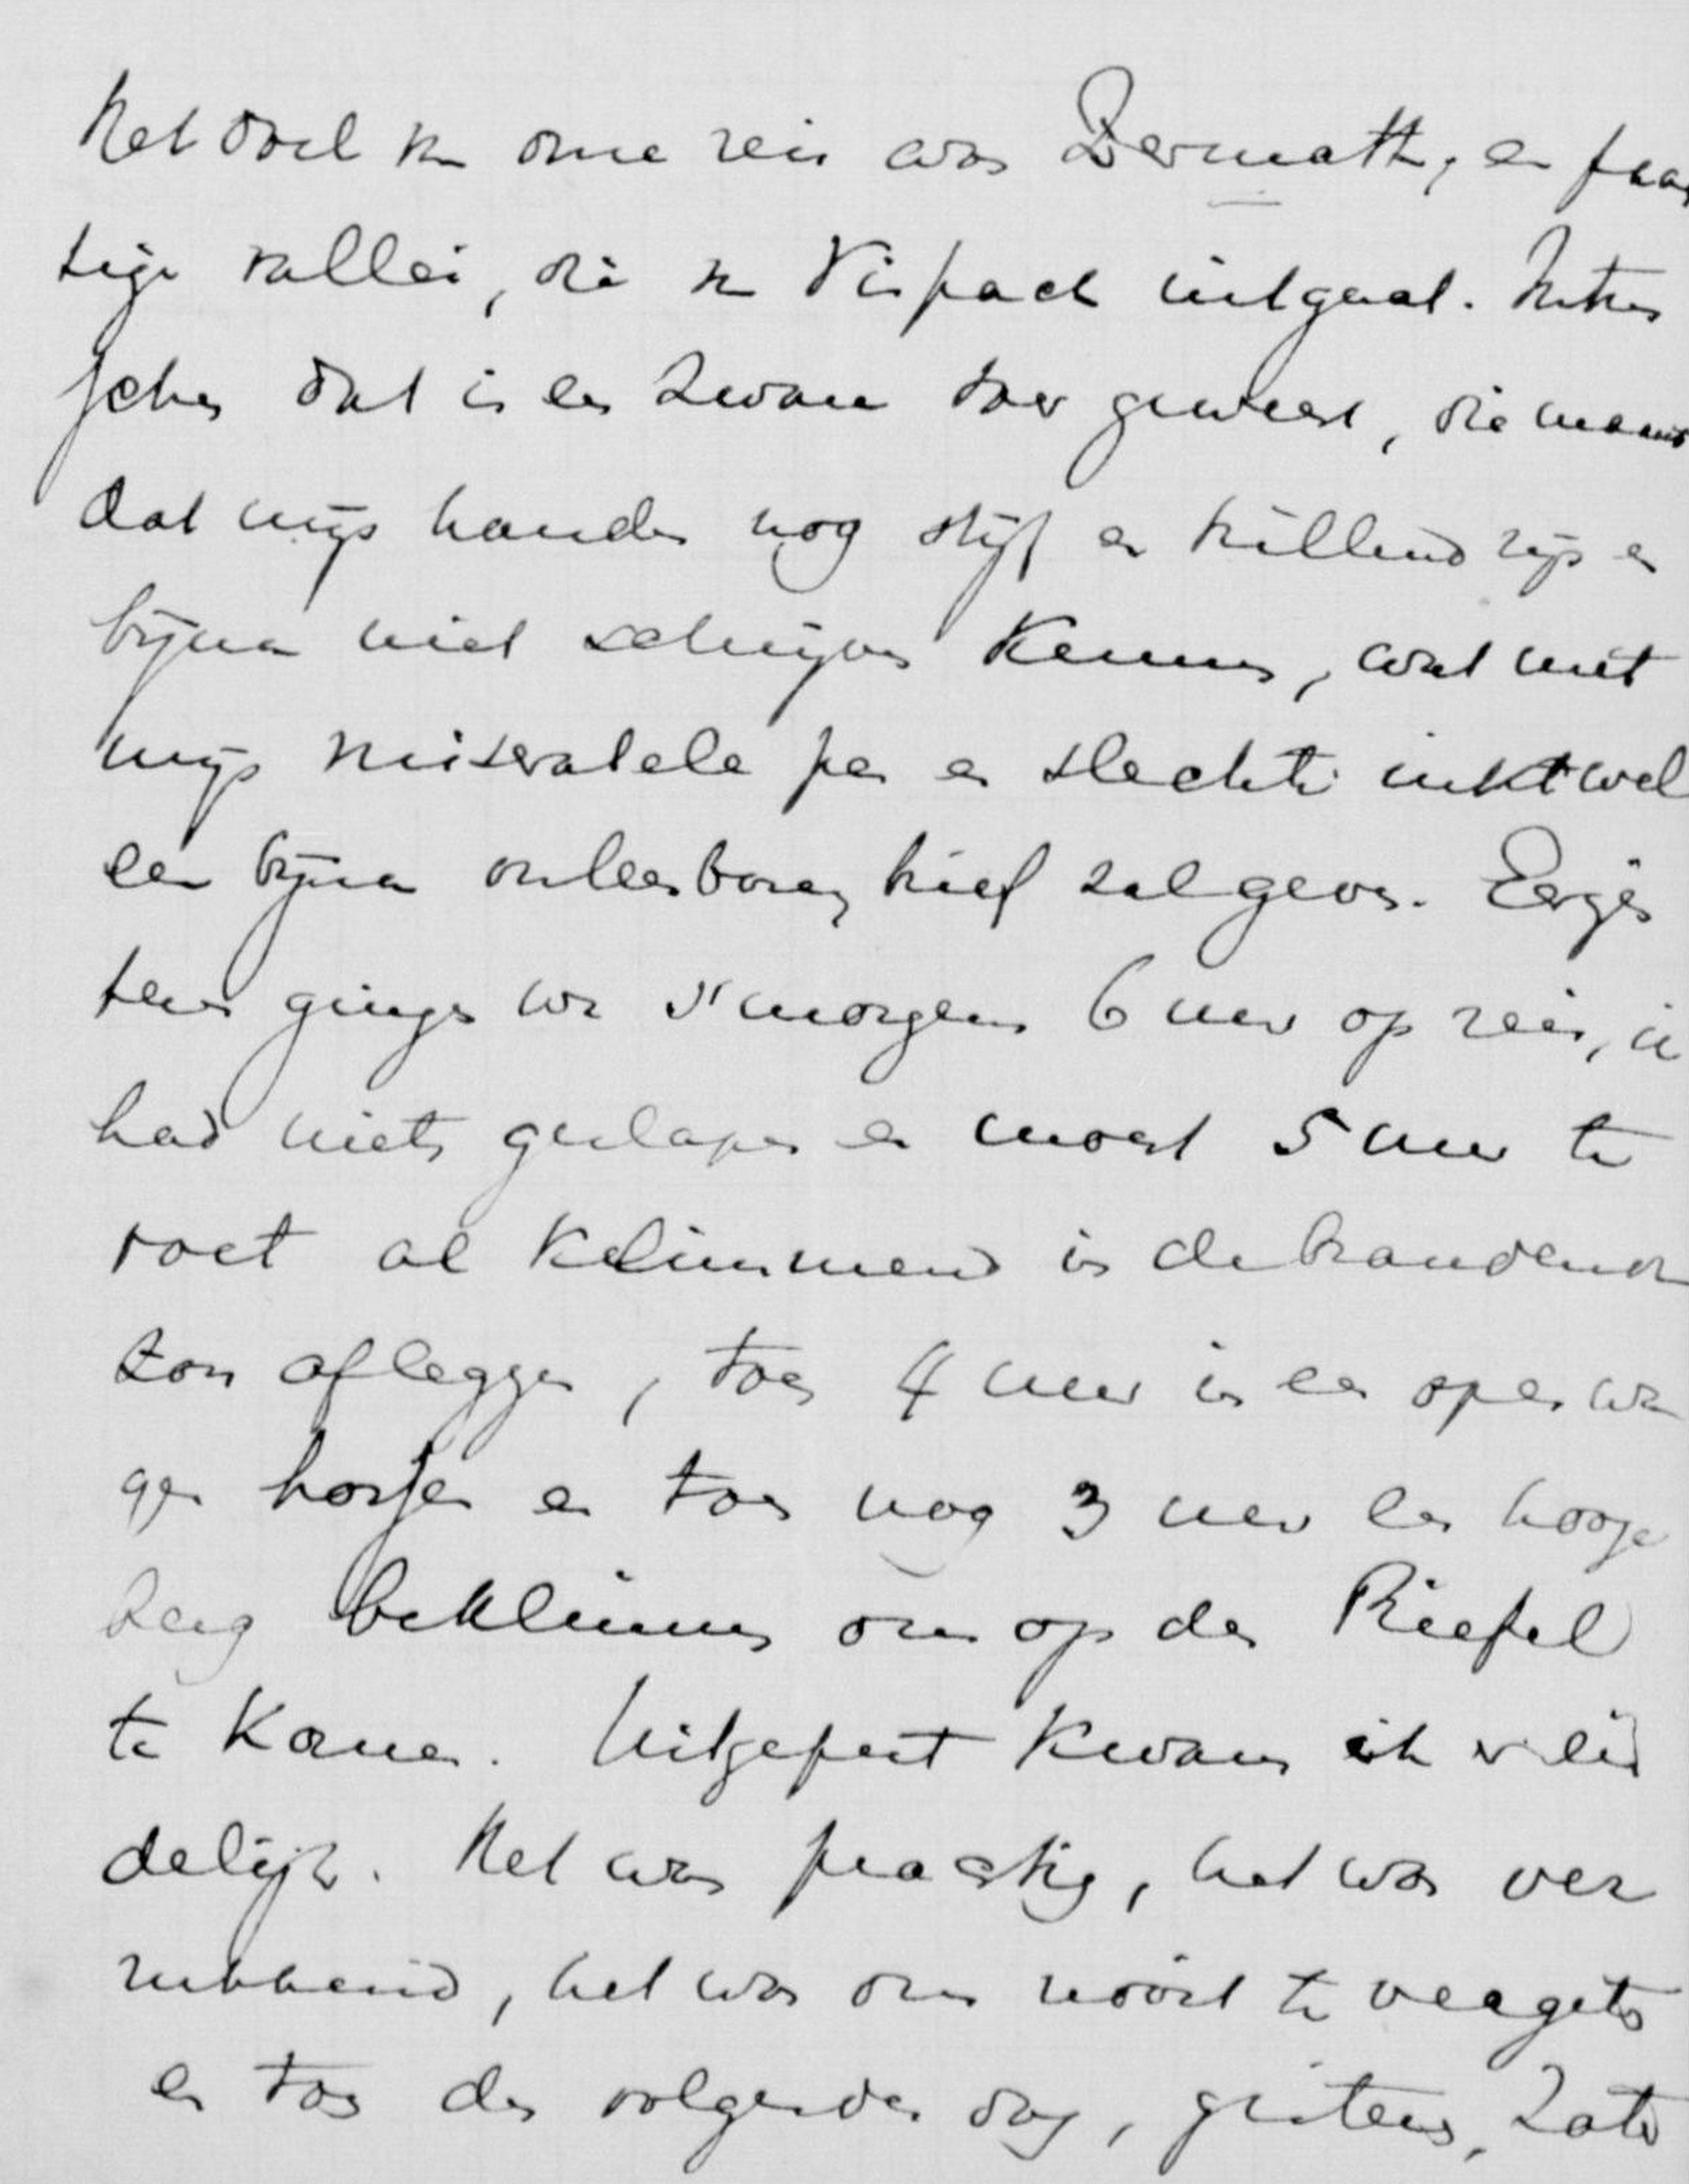 Het doel v. onze reis was Zermatt, een prach
tige vallei, die v. Vispach uitgaat. Intus
schen dat is een zware toer geweest, die maakt
dat mijn handen nog stijf en trillend zijn en
bijna niet schrijven kunnen, wat met
mijn miserabele pen en slechte inkt wel
een bijna onleesbaren brief zal geven. Eergis
teren gingen we s'morgens 6 uur op reis, ik
had niets geslapen en moest 5 uur te
voet al klimmend in de brandende
zon afleggen, toen 4 uur in een open wa
gen hossen en toen nog 3 uur een hooge
berg beklimmen om op den Riffel
te komen. Uitgeput kwam ik einde
delijk. Het was prachtig, het was ver
rukkend, het was om nooit te vergeten
en toen den volgenden dag, gisteren, zaten